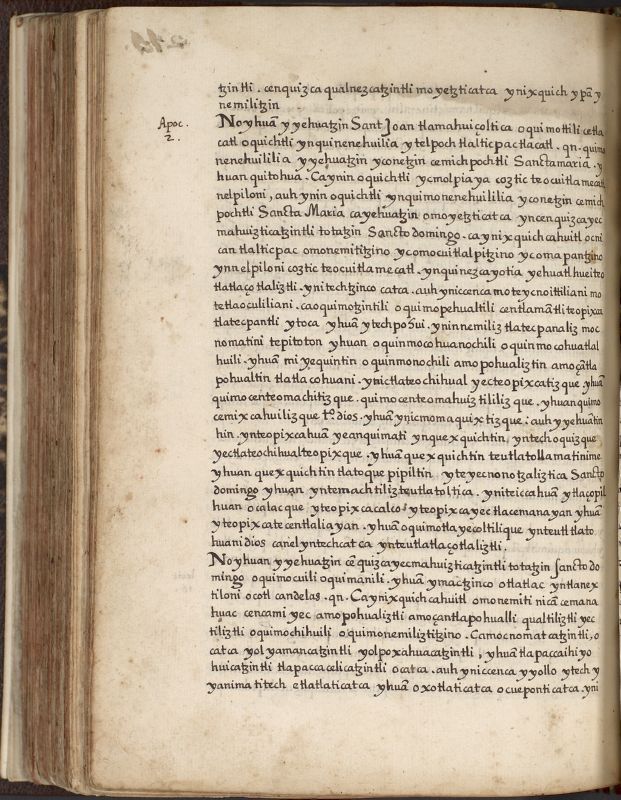 tzintli. cenquizca qualnezcatzintli moyetzticatca ynixquich ypã y
nemilitzin
Apoc.
2..
Noyhuã yyehuatzin Sant Joan tlamahuicoltica oquimottili cetla
catl oquichtli ynquinenehuilia ytelpoch tlalticpactlacatl. qn. quimo
nenehuililia yyehuatzin yconetzin cemichpochtli Sanctamaria. y
huan quitohua. Caynin oquichtli ycmolpiaya coztic teocuitlamecatl
nelpiloni, auh ynin oquichtli ynquimonenehuililia yconetzin cemich
pochtli Sancta Maria cayehuatzin omoyetzticatca yncenquizcayec
mahuizticatzintli totatzin Sancto domingo. caynixquichcahuitl ocni
can tlalticpac omonemititzino ycomocuitlalpitzino ycomapantzino
ynnelpiloni coztic teocuitlamecatl. ynquinezcayotia yehuatlhueiteo
tlatlaçotlaliztli. ynitechtzinco catca. auh yniccenca moteycnoittiliani mo
tetlaoculiliani. caoquimotzintili oquimopehualtili centlamãtli teopixca
tlatecpantli ytoca yhuã ytechpoSui. yninnemiliz tlatecpanaliz moc
nomatini tepitoton yhuan oquinmocohuanochili oquinmocohuatlal
huili. yhuã miyequintin oquinmonochili amopohualiztin amoçãtla
pohualtin tlatlacohuani. ynictlateochihual yecteopixcatizque yhuã
quimocenteomachitizque. quimocenteomahuiztililizque. yhuan quimo
cemixcahuilizque t.º dios. yhuã ynicmomaquixtizque: auh yyehuãtin
hin. ynteopixcahuã yeanquimati ynquexquichtin, yntechoquizque
yectlateochihualteopixque. yhuã quexquichtin teutlatollamatinime
yhuan quexquichtin tlatoque pipiltin yteyecnonotzaliztica Sancto
domingo yhuan yntemachtilizteutlatoltica. yniteiccahuã ytlaçopil
huan ocalacque yteopixcacalco yteopixcayectlacemanayan yhuã
yteopixcatecentlaliayan. yhuã oquimotlayecoltilique ynteutl tlato
huani dios canel yntechcatca ynteutlatlaçotlaliztli.
Noyhuan yyehuatzin cẽquizcayecmahuizticatzintli totatzin sancto do
mingo oquimocuili oquimanili. yhuã ymactzinco otlatlac yntlanex
tiloni ocotl candelas. qn. Caynixquichcahuitl omonemiti nicã cemana
huac cencamiyec amopohualiztli amoçantlapohualli qualtiliztli yec
tiliztli oquimochihuili oquimonemiliztitzino. Camocnomatcatzintli, o
catca yolyamancatzintli yolpoxahuacatzintli, yhuã tlapaccaihiyo
huicatzintli tlapaccacelicatzintli ocatca. auh yniccenca yyollo ytech y
yanima titech etlatlaticatca yhuã oxotlaticatca ocueponticatca. yni